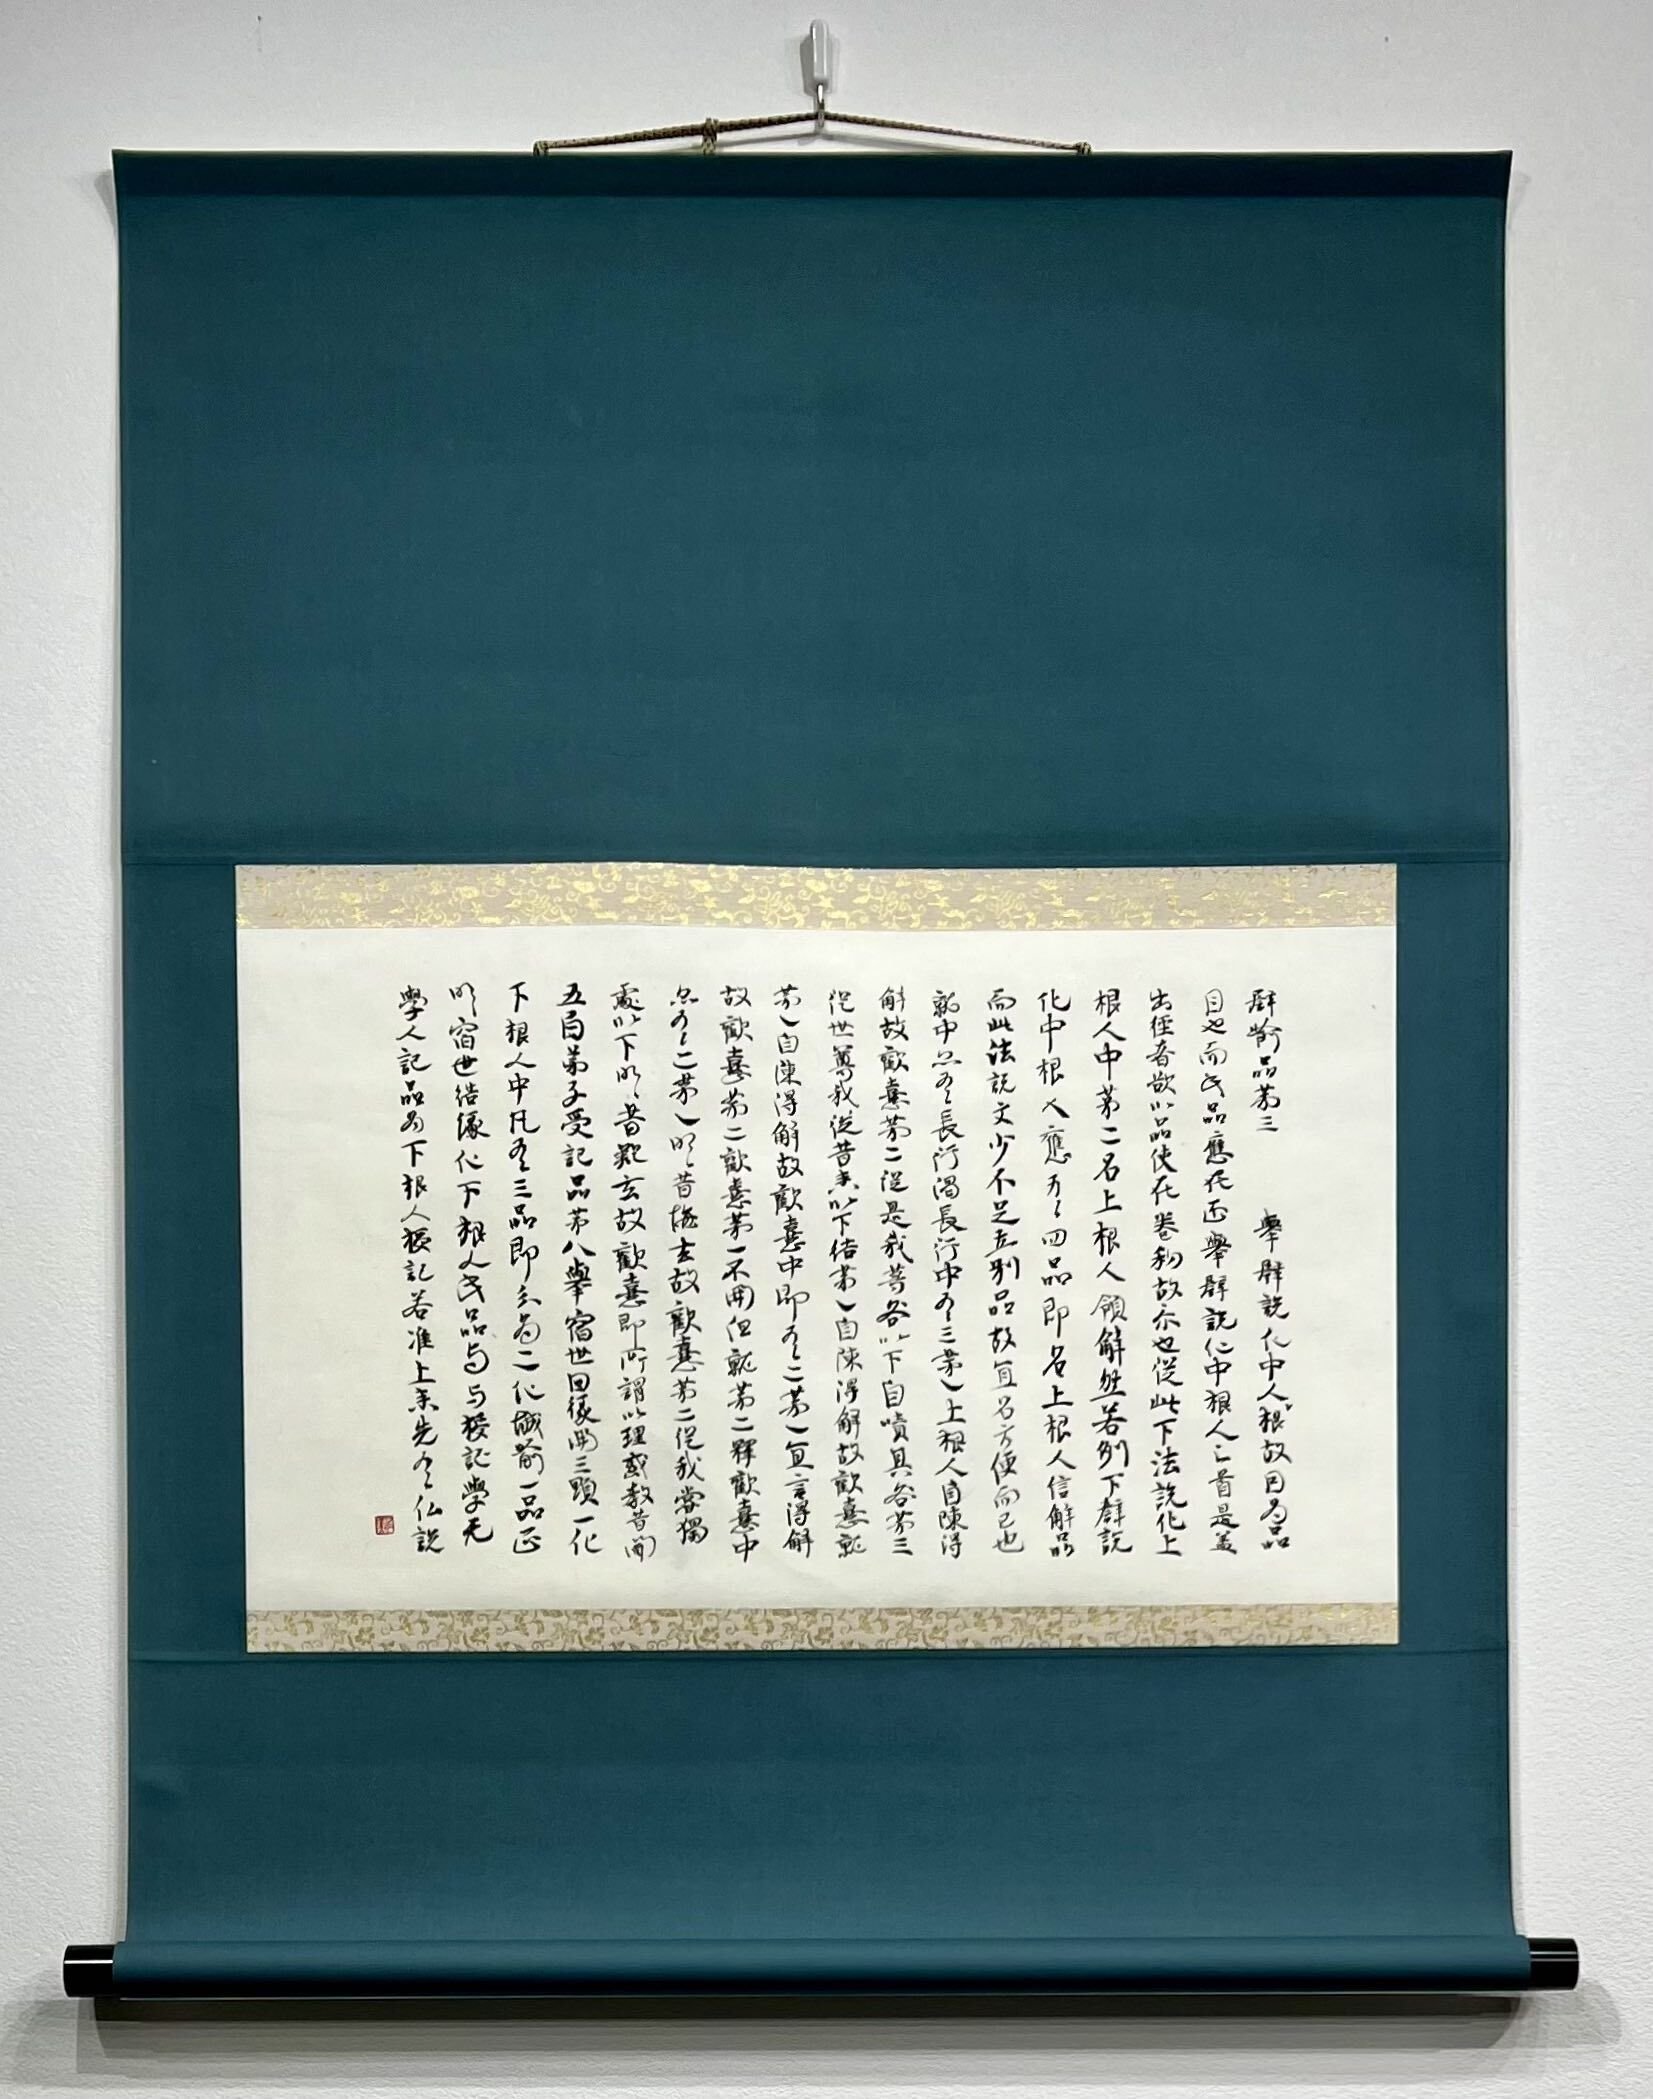 譬喩品第三 舉譬說化中人根故因為品
目也而此品應在逕舉譬說化中根人之首是盖
出經者欲以品使在卷初故尓也從此下法說化上
根人中第二名上根人領解然若例下譬說
化中根人應有四品即名上根人信解品
而此法說文少不足立別品故宜名方便而已也
就中亦有長行偈長行中有三第一上根人自陳得
解故歡憙第二從是我等咎以下自嘖其咎第三
從世尊我從昔来以下結第一自陳得解故歡憙就
第一自陳得解故歡憙中即有二第一直言得解
故歡憙第二歡憙第一不開但就第二釋歡憙中
亦有二第一明昔撫去故歡憙第二從我常獨
處以下明昔疑玄故歡憙即所謂以理或教昔開
五百弟子受記品第八舉宿世因縁開三顕一化
下根人中凡有三品即分為二化城喩一品正
明宿世結縁化下根人此品与与授記學无
學人記品為下根人授記若准上来先有仏說